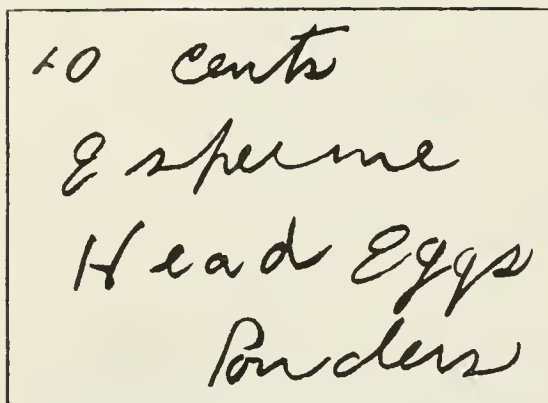 10 cents
Esperine
Head Eggs
Pouders